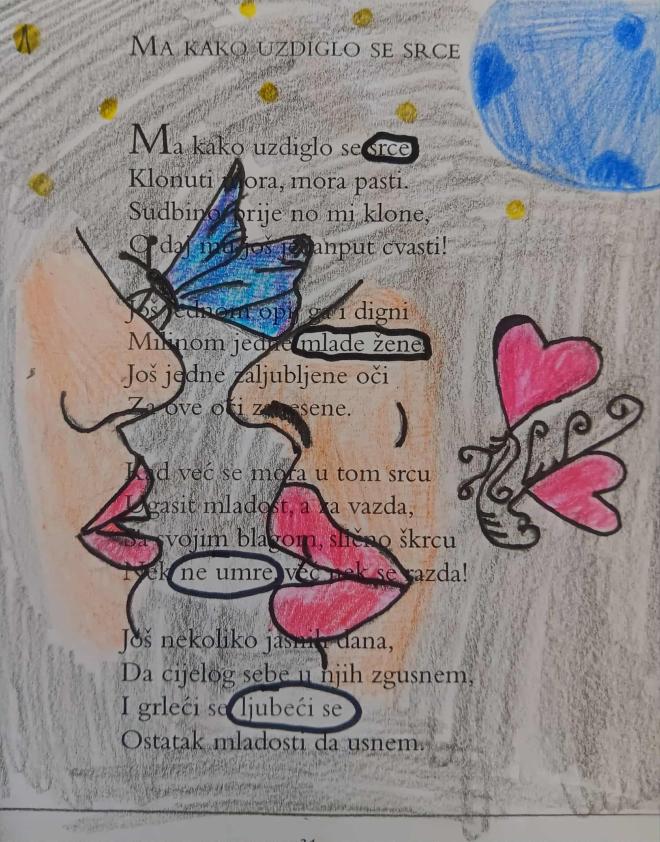 MA KAKO UZDIGLO SE SRCE
Ma kako uzdiglo se srce
Klonuti mora, mora pasti.
Sudbino, prije no mi klone,
O daj mu još jedanput cvasti!
Još jednom opij ga i digni
Milinom jedne mlade žene
Još jedne zaljubljene oči
Za ove oči zanesene.
Kad već se mora u tom srcu
Ugasit mladost, a za vazda,
Sa svojim blagom, slično škrcu
Nek ne umre, već nek se razda!
Još nekoliko jasnih dana,
Da cijelog sebe u njih zgusnem,
I grleći se ljubeći se
Ostatak mladosti da usnem.